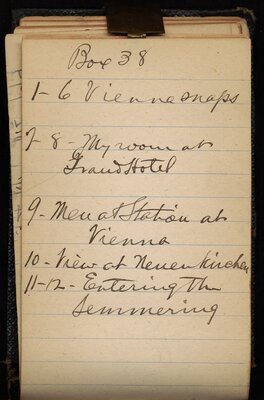 Box 38
1-6 Vienna snaps
7-8- My room at
Grand Hotel
9- Men at Station at
Vienna
10- View at Neuenkirchen
11-12- Entering the
Semmering